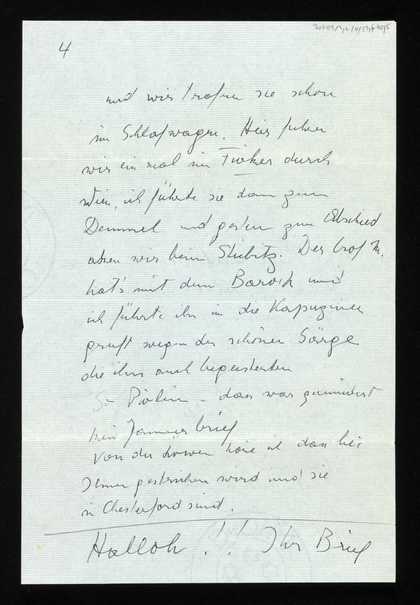 4
und wir trafen sie schon
im Schlafwagen. Hier fuhren
wir einmal im Fiaker durch
Wien, ich führte sie dann zum
Demmel und gestern zum Abschied
assen wir beim Stiebitz. Der Graf
hat's mit dem Barock und
ich führte ihn in die Kapuziner
gruft wegen der schönen Särge
die ihn auch begeisterten
So das war zumindest
kein Jammerbrief
Von der höre ich dass bei
gestrichen wird und sie
in Chesterford sind.
Halloh !! Ihr Brief